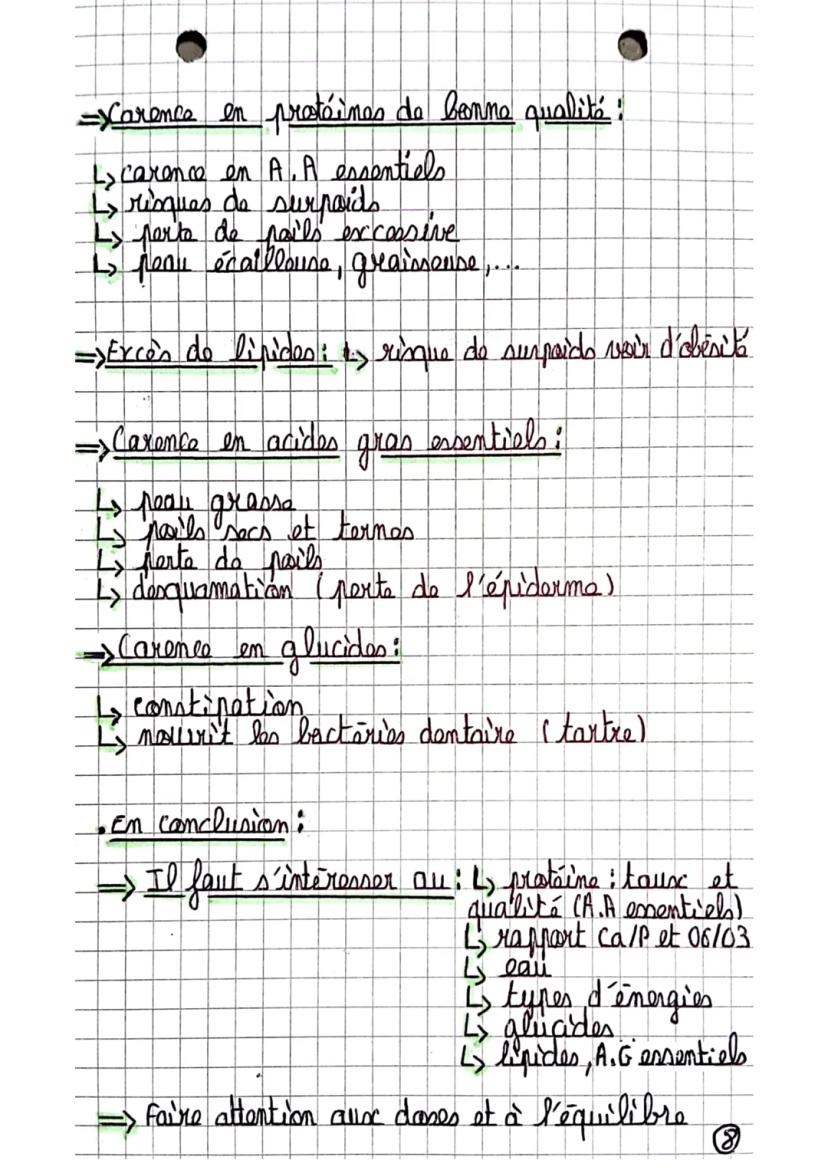 ⇒ Carence en protéines de bonne qualité :
↳ carence en A.A essentiels
↳ risques de surpoids
↳ perte de poils excessive
↳ peau écailleuse, graisseuse,...
⇒ Excès de lipides : ↳ risque de surpoids voir d'obésité
⇒ Carence en acides gras essentiels :
↳ peau grasse
↳ poils secs et ternes
↳ perte de poils
↳ desquamation (perte de l'épiderme)
⇒ Carence en glucides :
↳ constipation
↳ nourrit les bactéries dentaire (tartre)
• En conclusion :
⇒ Il faut s'intéresser au : ↳ protéine : taux et
qualité (A.A essentiels)
↳ rapport Ca/P et O6/O3
↳ eau
↳ types d'énergies
↳ glucides
↳ lipides, A.G essentiels
⇒ Faire attention aux doses et à l'équilibre
8